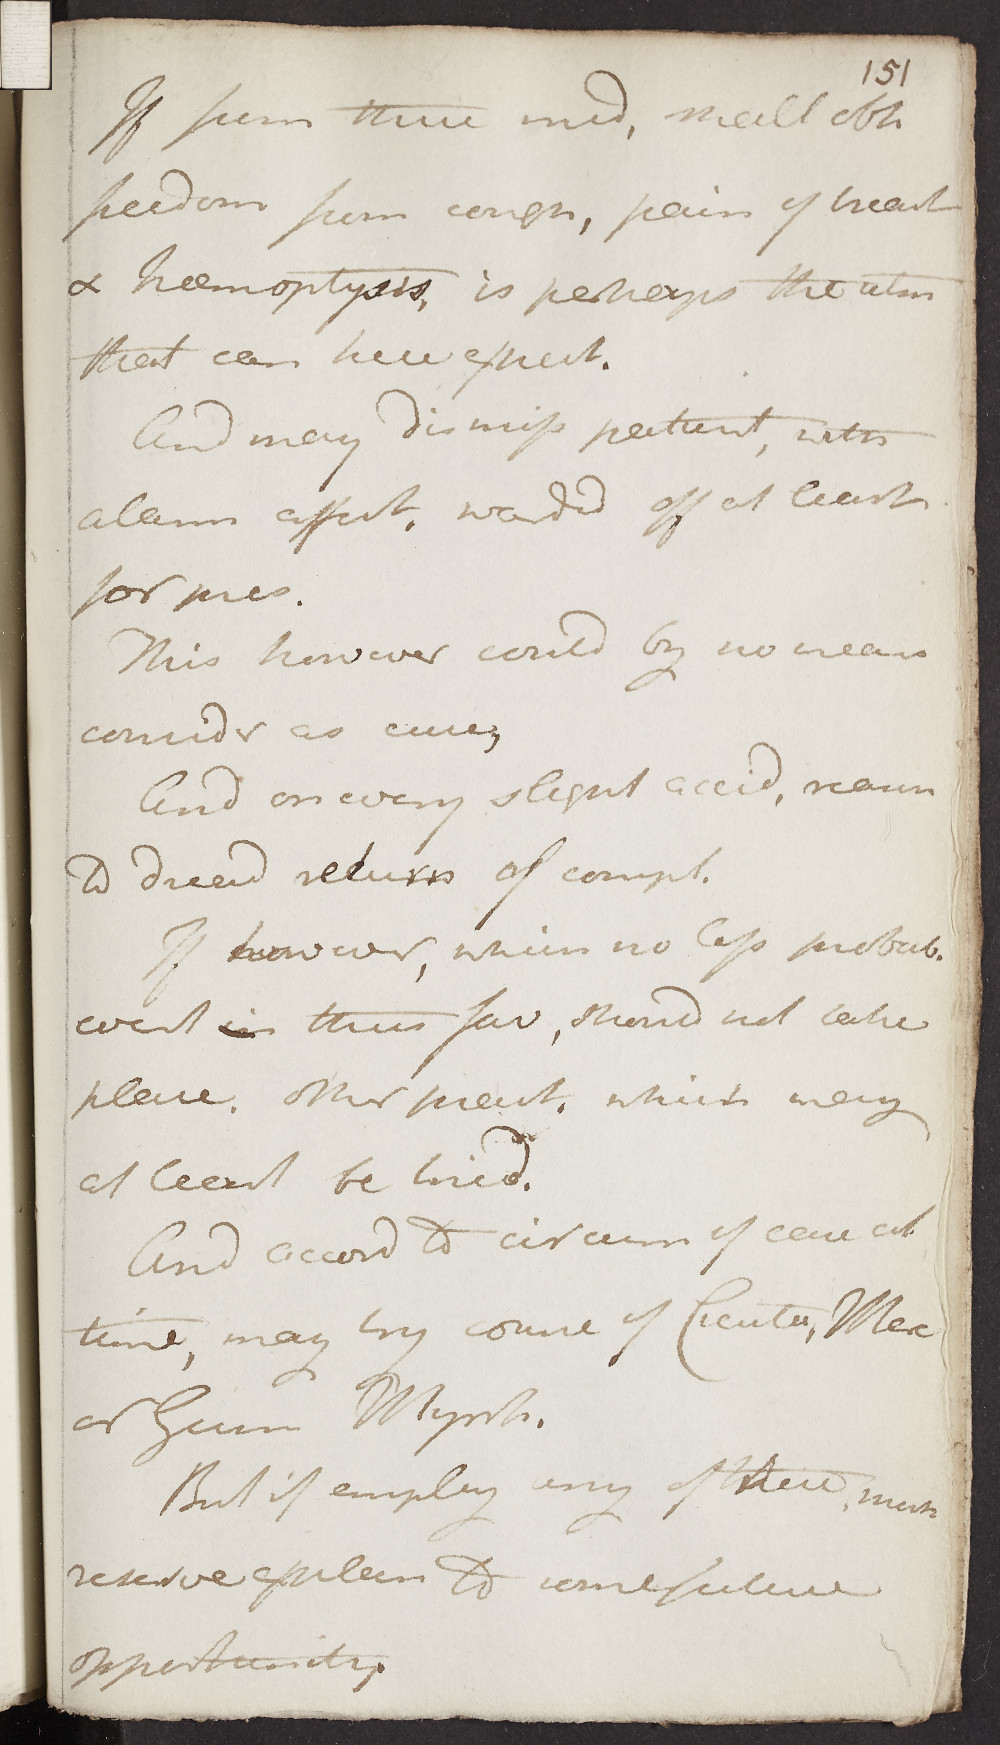 151
If from these med, shall obt
freedom from cough, pain of breast
& hæmoptysis, is perhaps the utm
that can here expect.
And may dismiss patient, with
alarm affect, warded off at least
for pres.
This however could by no mean
consider as cure,
And on every slight accid, reason
to dread return of compl.
If however, which no less probab.
event in thus far, should not take
place, other pract. which may
at least be tried.
And accord to circum of case at
time, may try course of Cicuta, Merc
or Gum Myrrh.
But if employ any of these, must
reserve explan to some future
opportunity.